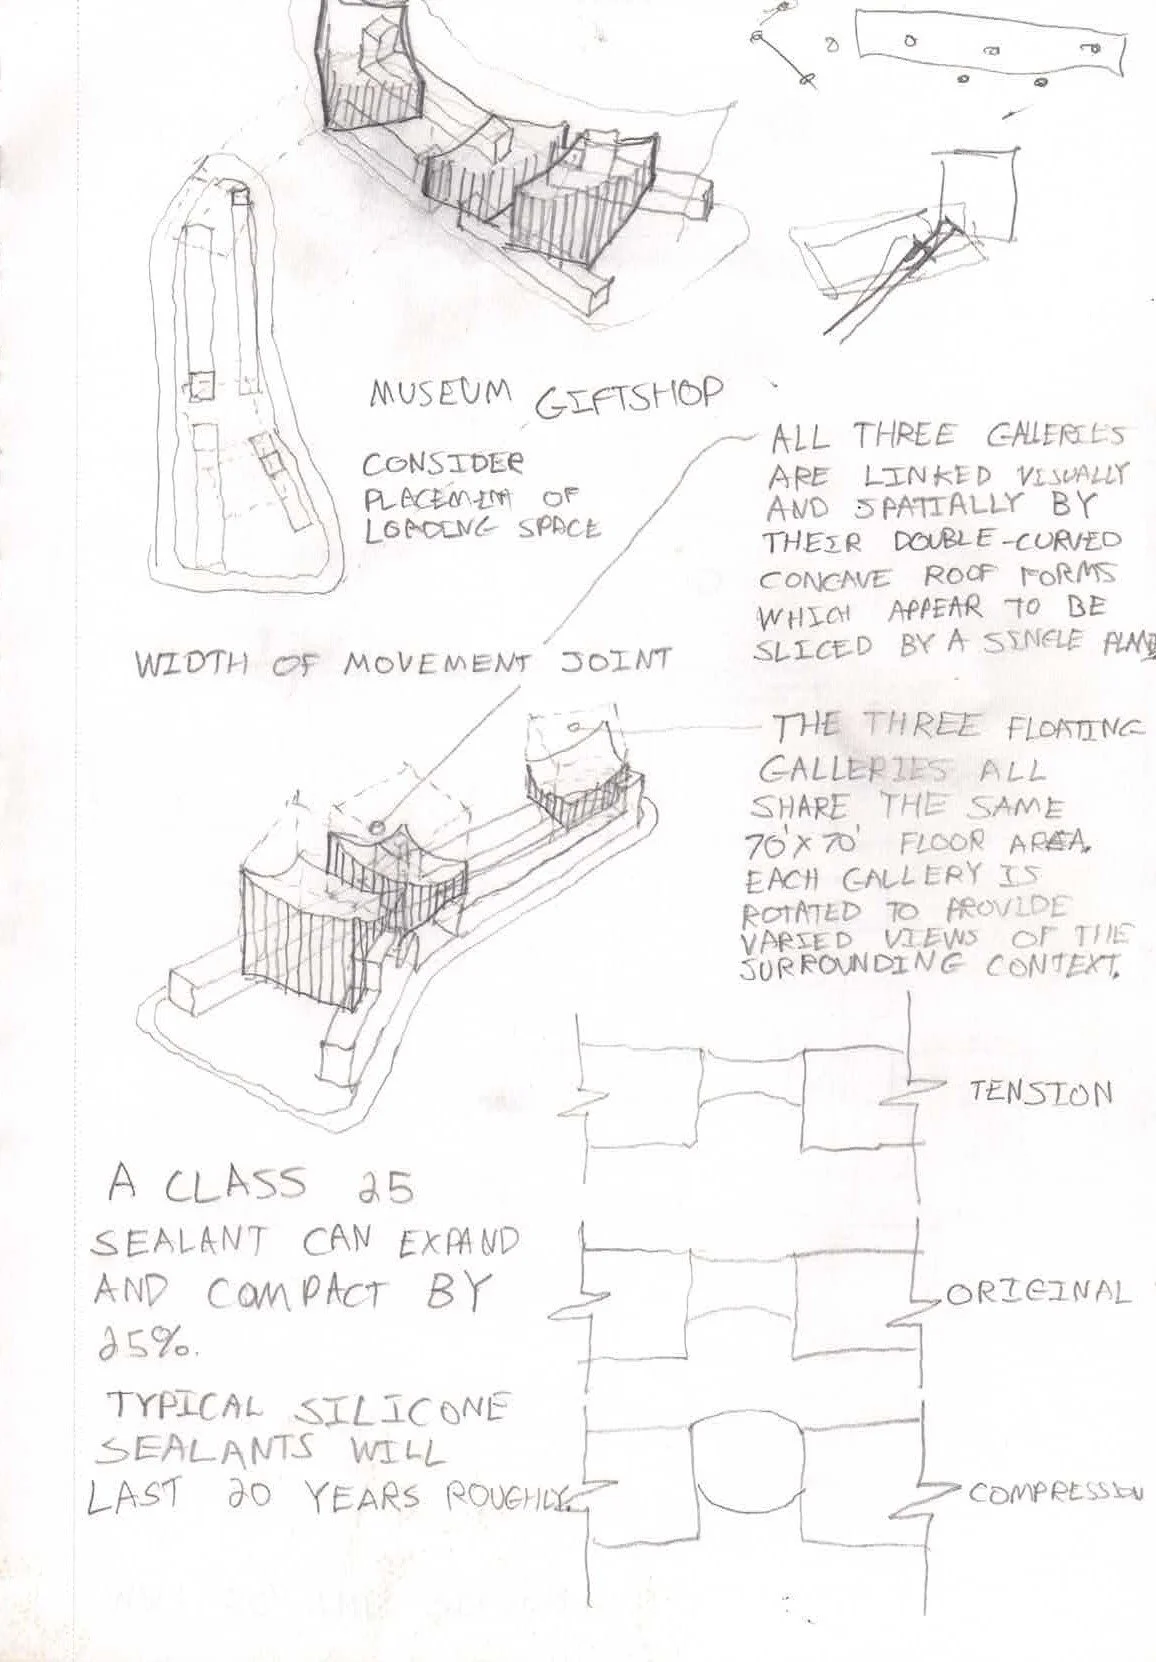 MUSEUM GIFTSHOP
CONSIDER
PLACEMENT OF
LOADING SPACE
ALL THREE GALLERIES
ARE LINKED VISUALLY
AND SPATIALLY BY
THEIR DOUBLE-CURVED
CONCAVE ROOF FORMS
WHICH APPEAR TO BE
SLICED BY A SINGLE PLANE
WIDTH OF MOVEMENT JOINT
THE THREE FLOATING
GALLERIES ALL
SHARE THE SAME
70'X70' FLOOR AREA.
EACH GALLERY IS
ROTATED TO PROVIDE
VARIED VIEWS OF THE
SURROUNDING CONTEXT.
TENSION
A CLASS 25
SEALANT CAN EXPAND
AND COMPACT BY
25%.
ORIGINAL
TYPICAL SILICONE
SEALANTS WILL
LAST 20 YEARS ROUGHLY.
COMPRESSION